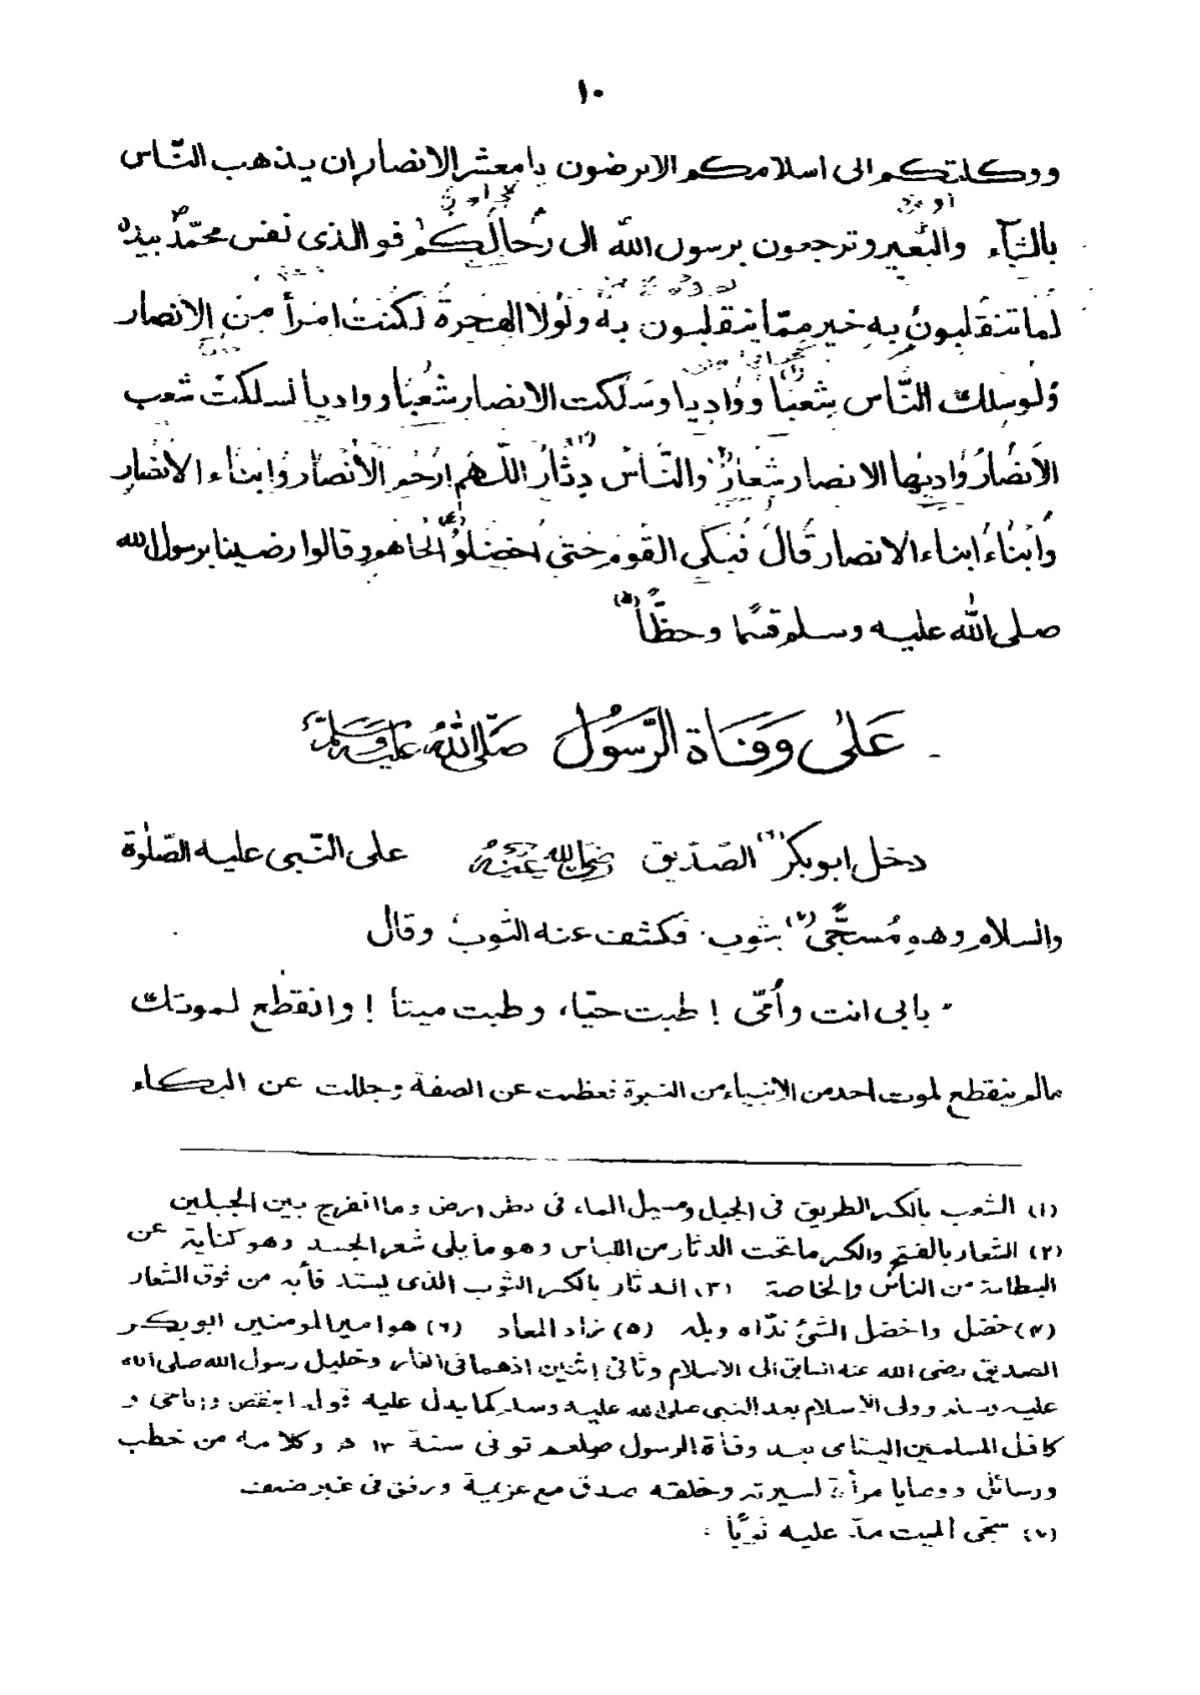 ١٠
ووكلتكم الى اسلامكم الا ترضون يا معشر الانصار ان يذهب النّاس
بالشاء والبعير وترجعون برسول الله الى رحالكم فو الذى نفس محمّد بيده
لما تنقلبون به خير ممّا ينقلبون به ولولا الهجرة لكنت امرأ من الانصار
ولو سلك النّاس شعبًا (١) وواديا وسلكت الانصار شعبًا وواديا لسلكت شعب
الانصار وواديها الانصار شعار (٢) والنّاس دثار (٣) اللّهم ارحم الانصار وابناء الانصار
وابناء ابناء الانصار قال فبكى القوم حتى اخضلوا (٤) لحاهم وقالوا رضينا برسول الله
صلى الله عليه وسلم قسمًا وحظًّا (٥)
على وفاة الرّسول صلّى الله عليه وسلّم
دخل ابوبكر (٦) الصّدّيق رضى الله عنه على النّبى عليه الصّلوة
والسلام وهو مُسجًّى (٧) بثوب. فكشف عنه الثوب وقال
بابى انت وأُمّى ! طبت حيّا، وطبت ميتا ! وانقطع لموتك
مالم ينقطع لموت احد من الانبياء من النبوة فعظمت عن الصفة وجللت عن البكاء
(١) الشعب بالكسر الطريق فى الجبل ومسيل الماء فى بطن ارض وما انفرج بين الجبلين
(٢) الشعار بالفتح والكسر ما تحت الدثار من اللباس وهو ما يلى شعر الجسد وهو كناية عن
البطانة من الناس والخاصة (٣) الدثار بالكسر الثوب الذى يستدفأ به من فوق الشعار
(٤) خضل واخضل الشئ ندّاه وبله (٥) زاد المعاد (٦) هو امير المومنين ابوبكر
الصديق رضى الله عنه السابق الى الاسلام وثانى اثنين اذهما فى الغار وخليل رسول الله صلى الله
عليه وسلم وولى الاسلام بعد النبى صلى الله عليه وسلم كما يدل عليه قوله اينقص وانا حى و
كافل المسلمين اليتامى بعد وفاة الرسول صلعم توفى سنة ١٣ هـ وكلامه من خطب
ورسائل ووصايا مرأة لسيرته وخلقه صدق مع عزيمة ورفق فى غير ضعف
(٧) سجّى الميت مدّ عليه ثوبًا